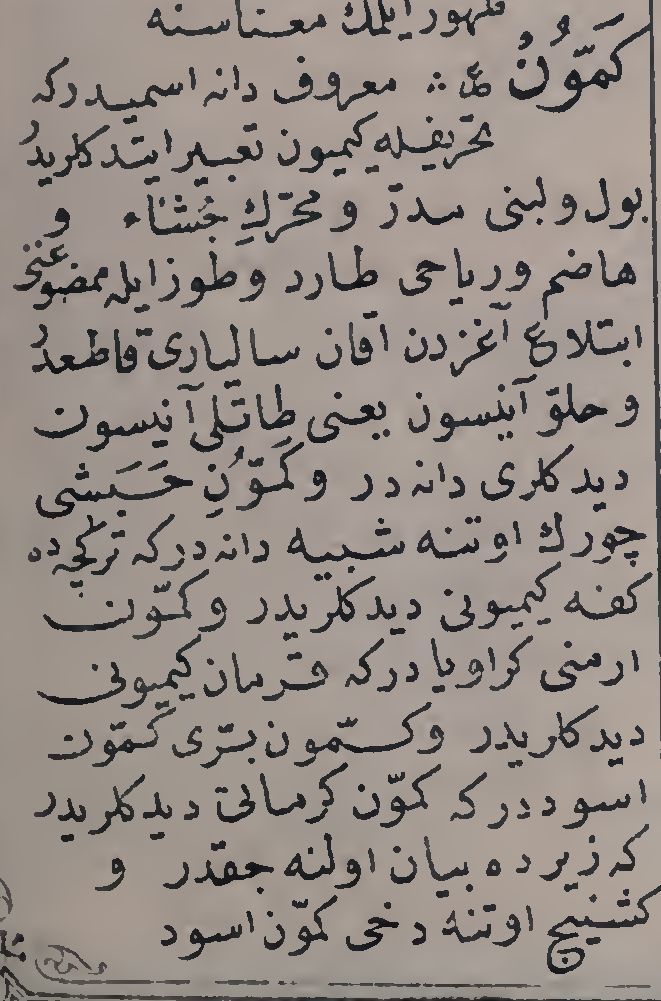 ظهور ايلمك معناسنه
كَمّوُنُ ع ؞ معروف دانه اسميدركه
تحريفيله كيميون تعبير ايتدكلريدُر
بول و لبنى مدرّ و محرّكِ جُشَاء و
هاضم و رياحى طارد و طوز ايله ممضوغنى
ابتلاع آغزدن آقان ساليارى قاطعدُر
و حلو آنيسون يعنى طاتلى آنيسون
ديدكلرى دانه در و كَمّوُنِ حَبَشى
چورك اوتنه شبيه دانه دركه تركجه ده
كفه كيميونى ديدكلريدر و كمّون
ارمنى كراويا دركه قرمان كيميونى
ديدكلريدر و كمّون برّى كمّون
اسوددر كه كمّون كرمانى ديدكلريدر
كه زيرده بيان اولنه جقدر و
كشنيج اوتنه دخى كمّون اسود